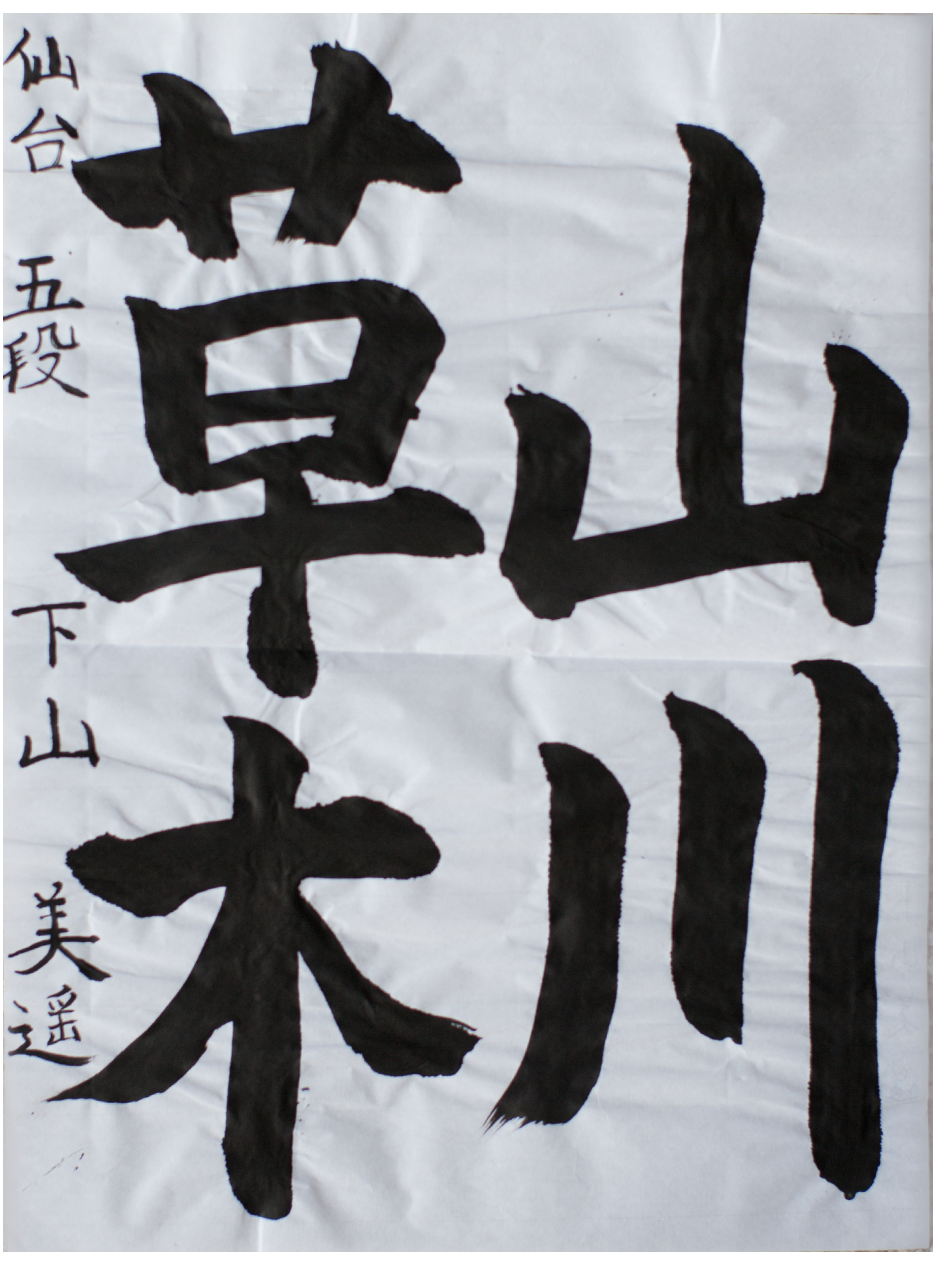 山川
草木
仙台 五段 下山 美遥